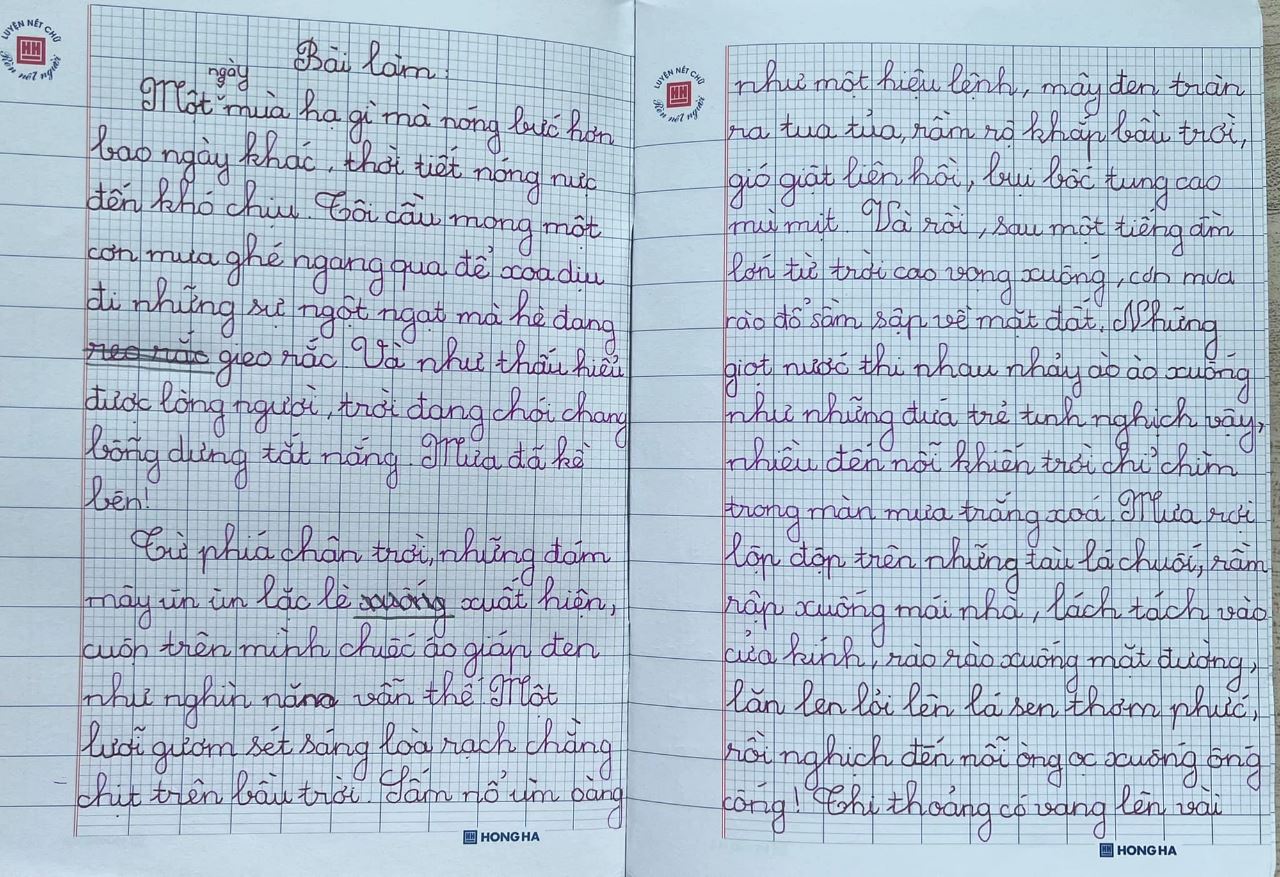 LUYỆN NÉT CHỮ
HH
Rèn nết người
Bài làm:
ngày
Một mùa hạ gì mà nóng bức hơn
bao ngày khác, thời tiết nóng nực
đến khó chịu. Tôi cầu mong một
cơn mưa ghé ngang qua để xoa dịu
đi những sự ngột ngạt mà hè đang
reo rắc gieo rắc. Và như thấu hiểu
được lòng người, trời đang chói chang
bỗng dưng tắt nắng. Mưa đã kề
bên!
Từ phiá chân trời, những đám
mây ùn ùn lặc lè xuống xuất hiện,
cuộn trên mình chiếc áo giáp đen
như nghìn năng vẫn thế. Một
lưỡi gươm sét sáng loà rạch chằng
chịt trên bầu trời. Sấm nổ ùm oàng
HH HONG HA
LUYỆN NÉT CHỮ
HH
Rèn nết người
như một hiệu lệnh, mây đen tràn
ra tua tủa, rầm rộ khắp bầu trời,
gió giật liên hồi, bụi bốc tung cao
mù mịt. Và rồi, sau một tiếng ầm
lớn từ trời cao vọng xuống, cơn mưa
rào đổ sầm sập về mặt đất. Những
giọt nước thi nhau nhảy ào ào xuống
như những đứa trẻ tinh nghịch vậy,
nhiều đến nỗi khiến trời chỉ chìm
trong màn mưa trắng xoá. Mưa rơi
lộp độp trên những tàu lá chuối, rầm
rập xuống mái nhà, lách tách vào
cửa kính, rào rào xuống mặt đường,
lăn len lỏi lên lá sen thơm phức,
rồi nghịch đến nỗi òng ọc xuống ống
cống! Thi thoảng có vang lên vài
HH HONG HA